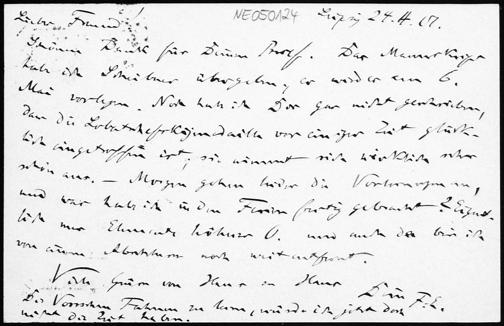 NE050124
Leipzig 24.4.17.
Lieber Freund!
Schönen Dank für Deinen Brief. Das Manuskript
hab ich Scheibner übergeben, er wird es am 6.
Mai vorlegen. Noch hab ich Dir gar nicht geschrieben,
dass die Lobatschefskijmedaille vor einiger Zeit glück-
lich eingetroffen ist; sie nimmt sich wirklich sehr
schön aus. — Morgen gehen leider die Vorlesungen an,
und was hab ich in den Ferien fertig gebracht? Eigent-
lich nur Elemente höherer O. und auch da bin ich
von einem Abschluss noch weit entfernt.
Viele Grüsse von Haus zu Haus
Dein F. E.
Das Vorrechen zu, würde ich jetzt doch
nicht die Zeit haben.